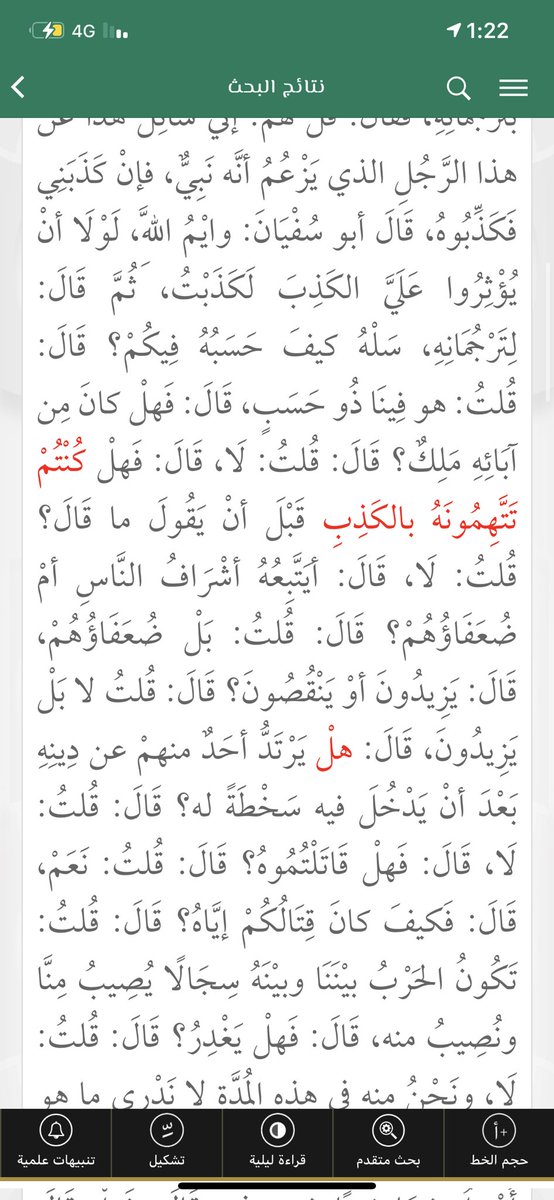 4G 1:22
نتائج البحث
بتَرْجُمَانِهِ، فَقَالَ: قُلْ لهمْ: إنِّي سَائِلٌ هذا عن
هذا الرَّجُلِ الذي يَزْعُمُ أنَّه نَبِيٌّ، فإنْ كَذَبَنِي
فَكَذِّبُوهُ، قَالَ أبو سُفْيَانَ: وايْمُ اللَّهِ، لَوْلَا أنْ
يُؤْثِرُوا عَلَيَّ الكَذِبَ لَكَذَبْتُ، ثُمَّ قَالَ:
لِتَرْجُمَانِهِ، سَلْهُ كيفَ حَسَبُهُ فِيكُمْ؟ قَالَ:
قُلتُ: هو فِينَا ذُو حَسَبٍ، قَالَ: فَهلْ كانَ مِن
آبَائِهِ مَلِكٌ؟ قَالَ: قُلتُ: لَا، قَالَ: فَهلْ كُنْتُمْ
تَتَّهِمُونَهُ بالكَذِبِ قَبْلَ أنْ يَقُولَ ما قَالَ؟
قُلتُ: لَا، قَالَ: أيَتَّبِعُهُ أشْرَافُ النَّاسِ أمْ
ضُعَفَاؤُهُمْ؟ قَالَ: قُلتُ: بَلْ ضُعَفَاؤُهُمْ،
قَالَ: يَزِيدُونَ أوْ يَنْقُصُونَ؟ قَالَ: قُلتُ لا بَلْ
يَزِيدُونَ، قَالَ: هلْ يَرْتَدُّ أحَدٌ منهمْ عن دِينِهِ
بَعْدَ أنْ يَدْخُلَ فيه سَخْطَةً له؟ قَالَ: قُلتُ:
لَا، قَالَ: فَهلْ قَاتَلْتُمُوهُ؟ قَالَ: قُلتُ: نَعَمْ،
قَالَ: فَكيفَ كانَ قِتَالُكُمْ إيَّاهُ؟ قَالَ: قُلتُ:
تَكُونُ الحَرْبُ بيْنَنَا وبيْنَهُ سِجَالًا يُصِيبُ مِنَّا
ونُصِيبُ منه، قَالَ: فَهلْ يَغْدِرُ؟ قَالَ: قُلتُ:
لَا، ونَحْنُ منه في هذِه المُدَّةِ لا نَدْرِي ما هو
حجم الخط
بحث متقدم
قراءة ليلية
تشكيل
تنبيهات علمية